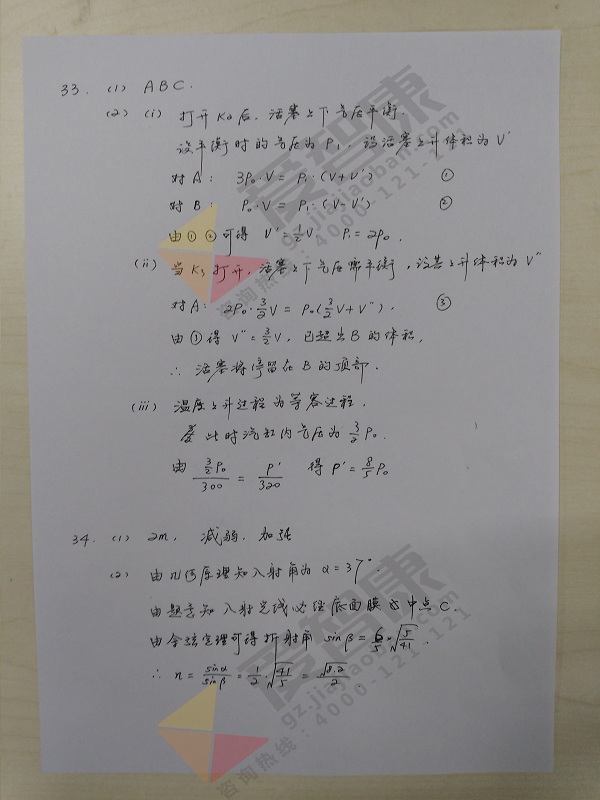 33. (1) ABC.
(2) (i) 打开K2后，活塞上下气压平衡.
设平衡时的气压为P1，设活塞上升体积为V'
对A： 3P0·V = P1·(V+V') ①
对B： P0·V = P1·(V-V') ②
由①②可得 V'=1/2V P1=2P0.
(ii) 当K3打开，活塞上下气压需平衡，设其上升体积为V''
对A： 2P0·3/2V = P0(3/2V+V'')， ③
由③得 V''=3/2V，已超出B的体积，
∴ 活塞将停留在B的顶部.
(iii) 温度上升过程为等容过程.
此时汽缸内气压为3/2P0.
由 (3/2P0)/300 = P'/320 得 P'=8/5P0
34. (1) 2m， 减弱， 加强
(2) 由几何原理知入射角为α=37°.
由题意知入射光线必经底面膜的中点C.
由余弦定理可得折射角 sinβ=6/5·√(5/41).
∴ n=sinα/sinβ=1/2·√(41/5)=√8.2/2
爱智康
gz.jiajiaoban.com
咨询热线：4000-121-121
爱智康
gz.jiajiaoban.com
咨询热线：4000-121-121